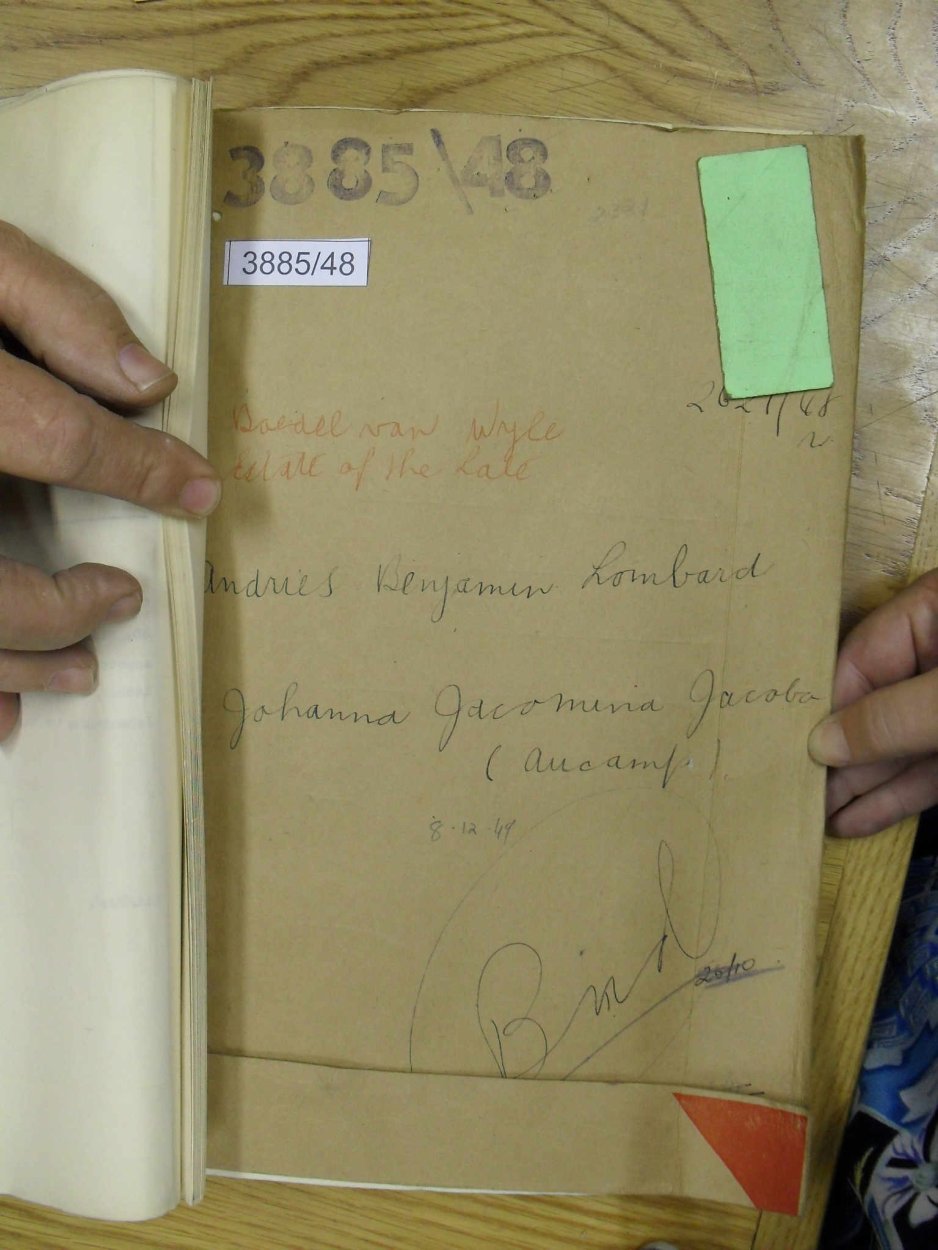 3885\48
3885/48
Boedel van Wyle
Estate of the Late
Andries Benjamin Lombard
Johanna Jacomina Jacoba
(Aucamp).
8-12-49
Bind
20/10